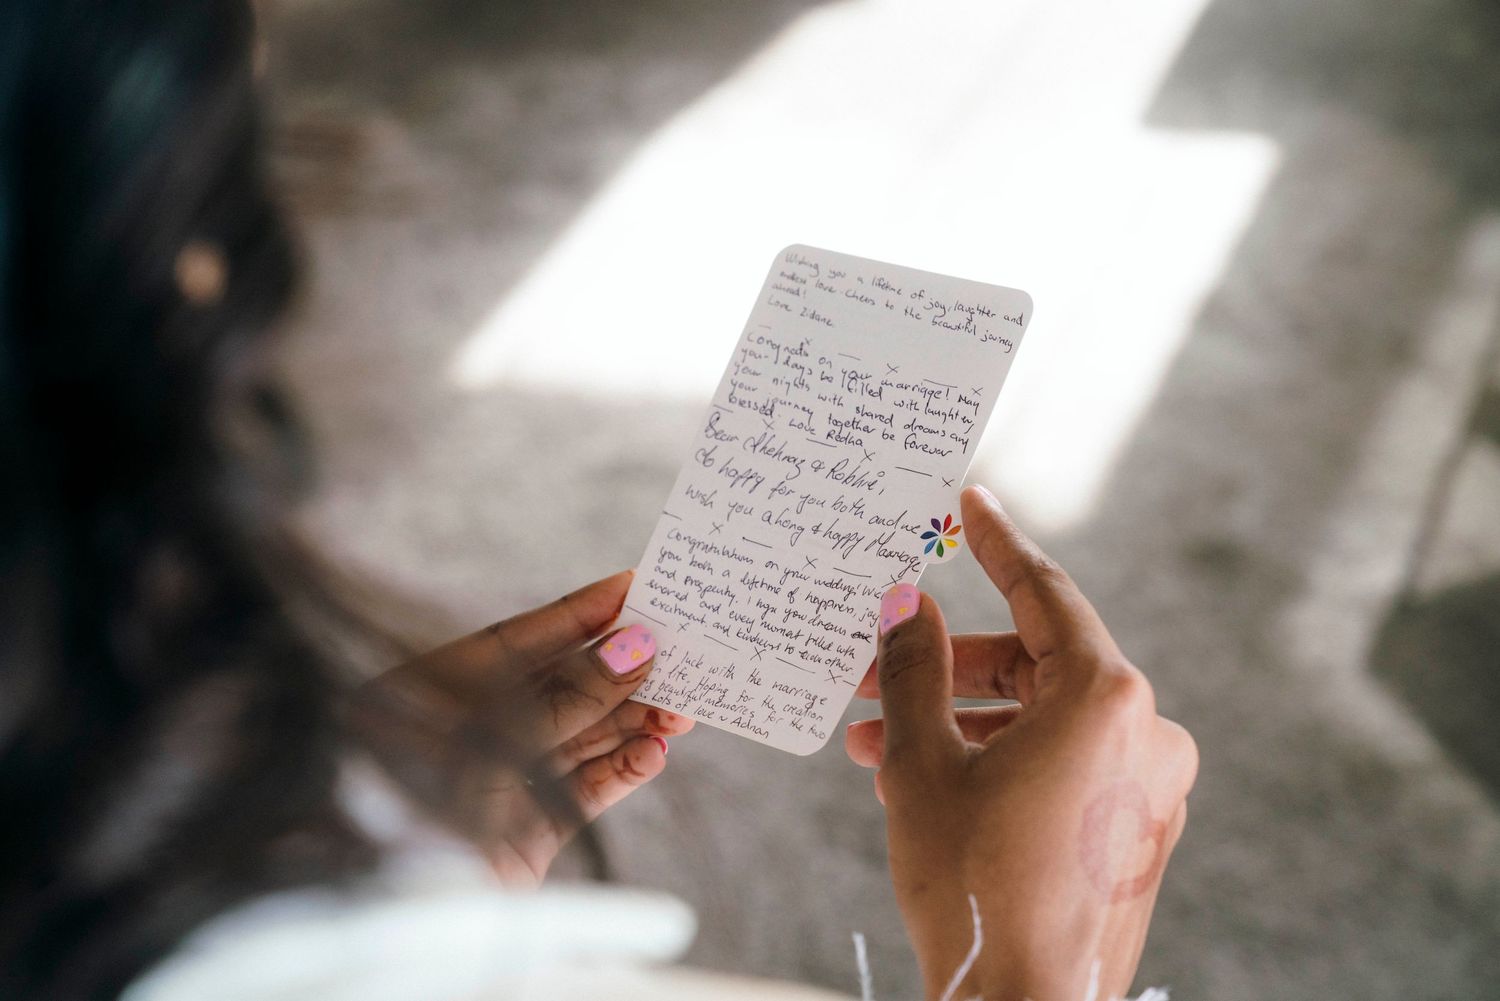 Wishing you a lifetime of joy, laughter and
endless love. Cheers to the beautiful journey
ahead!
Love Zidane
Congrats on your marriage! May
your days be filled with laughter,
your nights with shared dreams and
your journey together be forever
blessed. Love Redha
Dear &
So happy for you both and we
wish you a long & happy Marriage
Congratulations on your wedding!
you both a lifetime of happiness, joy
and prosperity. I hope you dream
shared and every moment filled with
excitment and kindness to each other.
of luck with the marriage
life. Hoping for the creation
beautiful memories for the two
Lots of love ~ Adnan